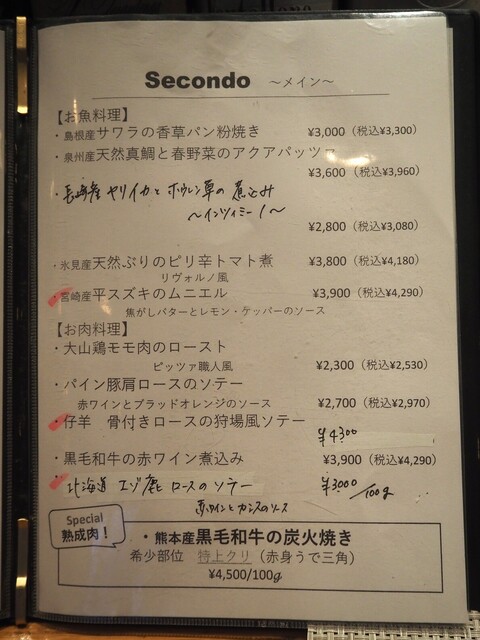 Secondo ～メイン～
【お魚料理】
・島根産サワラの香草パン粉焼き ¥3,000（税込¥3,300）
・泉州産天然真鯛と春野菜のアクアパッツァ
¥3,600（税込¥3,960）
・長崎産 ヤリイカと ホウレン草の煮込み
～インツィミーノ～
¥2,800（税込¥3,080）
・氷見産天然ぶりのピリ辛トマト煮 ¥3,800（税込¥4,180）
リヴォルノ風
・宮崎産平スズキのムニエル ¥3,900（税込¥4,290）
焦がしバターとレモン・ケッパーのソース
【お肉料理】
・大山鶏モモ肉のロースト
ピッツァ職人風 ¥2,300（税込¥2,530）
・パイン豚肩ロースのソテー
赤ワインとブラッドオレンジのソース ¥2,700（税込¥2,970）
・仔羊 骨付きロースの狩場風ソテー
¥4300
・黒毛和牛の赤ワイン煮込み ¥3,900（税込¥4,290）
・北海道 エゾ鹿 ロースのソテー ¥3000/100g
赤ワインとカシスのソース
Special
熟成肉！
・熊本産黒毛和牛の炭火焼き
希少部位 特上クリ（赤身うで三角）
¥4,500/100g